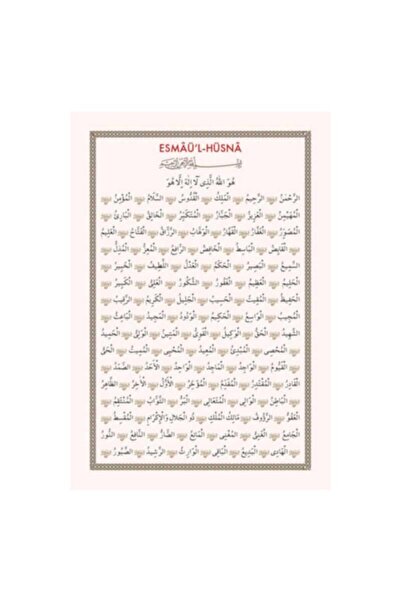 ESMÂÜ'L-HÜSNÂ
هُوَ اللّٰهُ الَّذٖي لَٓا اِلٰهَ اِلَّا هُوَ
اَلرَّحْمٰنُ اَلرَّحٖيمُ اَلْمَلِكُ اَلْقُدُّوسُ اَلسَّلَامُ اَلْمُؤْمِنُ
اَلْمُهَيْمِنُ اَلْعَزٖيزُ اَلْجَبَّارُ اَلْمُتَكَبِّرُ اَلْخَالِقُ اَلْبَارِئُ
اَلْمُصَوِّرُ اَلْغَفَّارُ اَلْقَهَّارُ اَلْوَهَّابُ اَلرَّزَّاقُ اَلْفَتَّاحُ اَلْعَلٖيمُ
اَلْقَابِضُ اَلْبَاسِطُ اَلْخَافِضُ اَلرَّافِعُ اَلْمُعِزُّ اَلْمُذِلُّ
اَلسَّمٖيعُ اَلْبَصٖيرُ اَلْحَكَمُ اَلْعَدْلُ اَللَّطٖيفُ اَلْخَبٖيرُ
اَلْحَلٖيمُ اَلْعَظٖيمُ اَلْغَفُورُ اَلشَّكُورُ اَلْعَلِيُّ اَلْكَبٖيرُ
اَلْحَفٖيظُ اَلْمُقٖيتُ اَلْحَسٖيبُ اَلْجَلٖيلُ اَلْكَرٖيمُ اَلرَّقٖيبُ
اَلْمُجٖيبُ اَلْوَاسِعُ اَلْحَكٖيمُ اَلْوَدُودُ اَلْمَجٖيدُ اَلْبَاعِثُ
اَلشَّهٖيدُ اَلْحَقُّ اَلْوَكٖيلُ اَلْقَوِيُّ اَلْمَتٖينُ اَلْوَلِيُّ اَلْحَمٖيدُ
اَلْمُحْصٖي اَلْمُبْدِئُ اَلْمُعٖيدُ اَلْمُحْيٖي اَلْمُمٖيتُ اَلْحَيُّ
اَلْقَيُّومُ اَلْوَاجِدُ اَلْمَاجِدُ اَلْوَاحِدُ اَلْاَحَدُ اَلصَّمَدُ
اَلْقَادِرُ اَلْمُقْتَدِرُ اَلْمُقَدِّمُ اَلْمُؤَخِّرُ اَلْاَوَّلُ اَلْاٰخِرُ اَلظَّاهِرُ
اَلْبَاطِنُ اَلْوَالٖي اَلْمُتَعَالٖي اَلْبَرُّ اَلتَّوَّابُ اَلْمُنْتَقِمُ
اَلْعَفُوُّ اَلرَّؤُوفُ مَالِكُ الْمُلْكِ ذُو الْجَلَالِ وَالْاِكْرَامِ اَلْمُقْسِطُ
اَلْجَامِعُ اَلْغَنِيُّ اَلْمُغْنٖي اَلْمَانِعُ اَلضَّارُّ اَلنَّافِعُ اَلنُّورُ
اَلْهَادٖي اَلْبَدٖيعُ اَلْبَاقٖي اَلْوَارِثُ اَلرَّشٖيدُ اَلصَّبُورُ